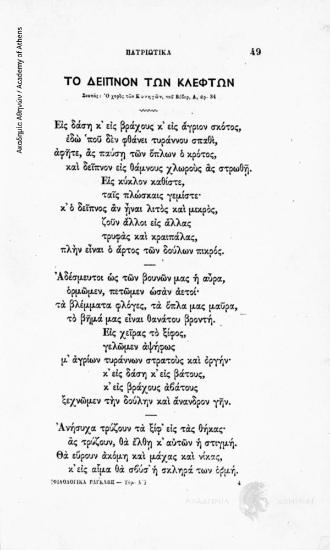 Ακαδημία Αθηνών / Academy of Athens
ΠΑΤΡΙΩΤΙΚΑ 49
ΤΟ ΔΕΙΠΝΟΝ ΤΩΝ ΚΛΕΦΤΩΝ
Σκοπός: Ὁ χορὸς τῶν Κυνηγῶν, τοῦ Βέβερ, Α, ἀρ. 34
Εἰς δάση κ' εἰς βράχους κ' εἰς ἄγριον σκότος,
ἐδὼ 'ποῦ δὲν φθάνει τυράννου σπαθὶ,
ἀφῆτε, ἂς παύσῃ τῶν ὅπλων ὁ κρότος,
καὶ δεῖπνον εἰς θάμνους χλωροὺς ἂς στρωθῇ.
Εἰς κύκλον καθίστε,
ταῖς πλώσκαις γεμίστε·
κ' ὁ δεῖπνος ἂν ᾖναι λιτὸς καὶ μικρὸς,
ζοῦν ἄλλοι εἰς ἄλλας
τρυφὰς καὶ κραιπάλας,
πλὴν εἶναι ὁ ἄρτος τῶν δούλων πικρός.
Ἀδέσμευτοι ὡς τῶν βουνῶν μας ἡ αὔρα,
ὁρμῶμεν, πετῶμεν ὡσὰν ἀετοί·
τὰ βλέμματα φλόγες, τὰ ὅπλα μας μαῦρα,
τὸ βῆμά μας εἶναι θανάτου βροντή.
Εἰς χεῖρας τὸ ξίφος,
γελῶμεν ἀψήφως
μ' ἀγρίων τυράννων στρατοὺς καὶ ὀργήν·
κ' εἰς δάση κ' εἰς βάτους,
κ' εἰς βράχους ἀβάτους
ξεχνῶμεν τὴν δούλην καὶ ἄνανδρον γῆν.
Ἀνήσυχα τρύζουν τὰ ξίφ' εἰς τὰς θήκας·
ἂς τρύζουν, θὰ ἔλθῃ κ' αὐτῶν ἡ στιγμή.
Θὰ εὕρουν ἀκόμη καὶ μάχας καὶ νίκας,
κ' εἰς αἷμα θὰ σβύσ' ἡ σκληρά των ὁρμή.
(ΦΙΛΟΛΟΓΙΚΑ ΡΑΓΚΑΒΗ — Τόμ. Α΄) 4
ΑΚΑΔΗΜΙΑ ΑΘΗΝΩΝ